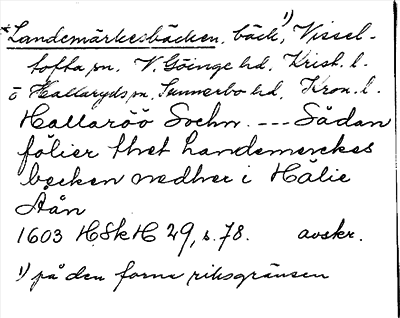 *Landemärkesbäcken, bäck¹⁾, Vissel-
tofta sn. V. Göinge hd. Krist. l.
o Hallaryds sn. Sunnerbo hd. Kron. l.
Hallaröö Sochn. --- Sådan
fölier thet Landemerckes
becken nedher i Hälie
Åån
1603 HSkH 29, s. 78. avskr.
¹⁾ på den forna riksgränsen